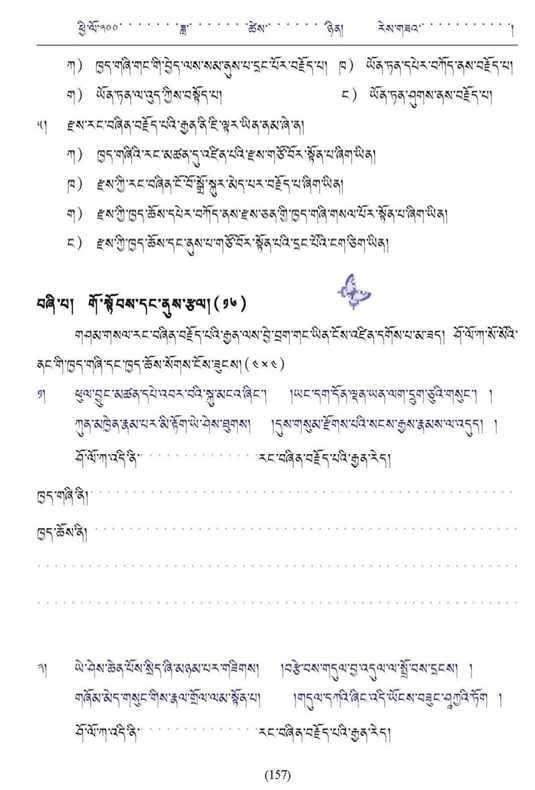 ཕྱི་ལོ་༢༠༠ ཟླ་ ཚེས་ ཉིན། རེས་གཟའ་ །
ཀ) ཁྱད་གཞི་གང་གི་བྱེད་ལས་སམ་ནུས་པ་དྲང་པོར་བརྗོད་པ། ཁ) ཡོན་ཏན་དཔེར་བཀོད་ནས་བརྗོད་པ།
ག) ཡོན་ཏན་ལ་འུད་ཀྱིས་བསྟོད་པ། ང) ཡོན་ཏན་ཤུགས་ནས་བརྗོད་པ།
༥། རྫས་རང་བཞིན་བརྗོད་པའི་རྒྱན་ནི་ཇི་ལྟར་ཡིན་ནམ་ཞེ་ན།
ཀ) ཁྱད་གཞིའི་རང་མཚན་དུ་འཛིན་པའི་རྫས་གཙོ་བོར་སྟོན་པ་ཞིག་ཡིན།
ཁ) རྫས་ཀྱི་རང་བཞིན་ངོ་བོ་སྒྲོ་སྐུར་མེད་པར་བརྗོད་པ་ཞིག་ཡིན།
ག) རྫས་ཀྱི་ཁྱད་ཆོས་དཔེར་བཀོད་ནས་རྫས་ཅན་གྱི་ཁྱད་གཞི་གསལ་པོར་སྟོན་པ་ཞིག་ཡིན།
ང) རྫས་ཀྱི་ཁྱད་ཆོས་དང་ནུས་པ་གཙོ་བོར་སྟོན་པའི་དྲང་པོའི་ངག་ཅིག་ཡིན།
བཞི་པ། གོ་སྟོབས་དང་ནུས་རྩལ། (༡༦)
གཤམ་གསལ་རང་བཞིན་བརྗོད་པའི་རྒྱན་ལས་བྱེ་བྲག་གང་ཡིན་ངོས་འཛིན་དགོས་པ་མ་ཟད། ཤོ་ལོ་ཀ་སོ་སོའི་
ནང་གི་ཁྱད་གཞི་དང་ཁྱད་ཆོས་སོགས་ངོས་ཟུངས། (༤×༤)
༡། ཕུལ་བྱུང་མཚན་དཔེ་འབར་བའི་སྐུ་མངའ་ཞིང་། །ཡང་དག་དོན་ལྡན་ཡན་ལག་དྲུག་ཅུའི་གསུང་། །
ཀུན་མཁྱེན་རྣམ་པར་མི་རྟོག་ཡེ་ཤེས་ཐུགས། །དུས་གསུམ་རྫོགས་པའི་སངས་རྒྱས་རྣམས་ལ་འདུད། །
ཤོ་ལོ་ཀ་འདི་ནི་ རང་བཞིན་བརྗོད་པའི་རྒྱན་རེད།
ཁྱད་གཞི་ནི།
ཁྱད་ཆོས་ནི།
༢། ཡེ་ཤེས་ཆེན་པོས་སྲིད་ཞི་མཉམ་པར་གཟིགས། །བརྩེ་བས་གདུལ་བྱ་འདུལ་ལ་སྤྲོ་བས་དྲངས། །
གཞོམ་མེད་གསུང་གིས་རྣལ་གྲོལ་ལམ་སྟོན་པ། །གདུལ་དཀའི་ཞིང་འདི་ཡོངས་བཟུང་ཤཱཀྱའི་ཏོག །
ཤོ་ལོ་ཀ་འདི་ནི་ རང་བཞིན་བརྗོད་པའི་རྒྱན་རེད།
(157)